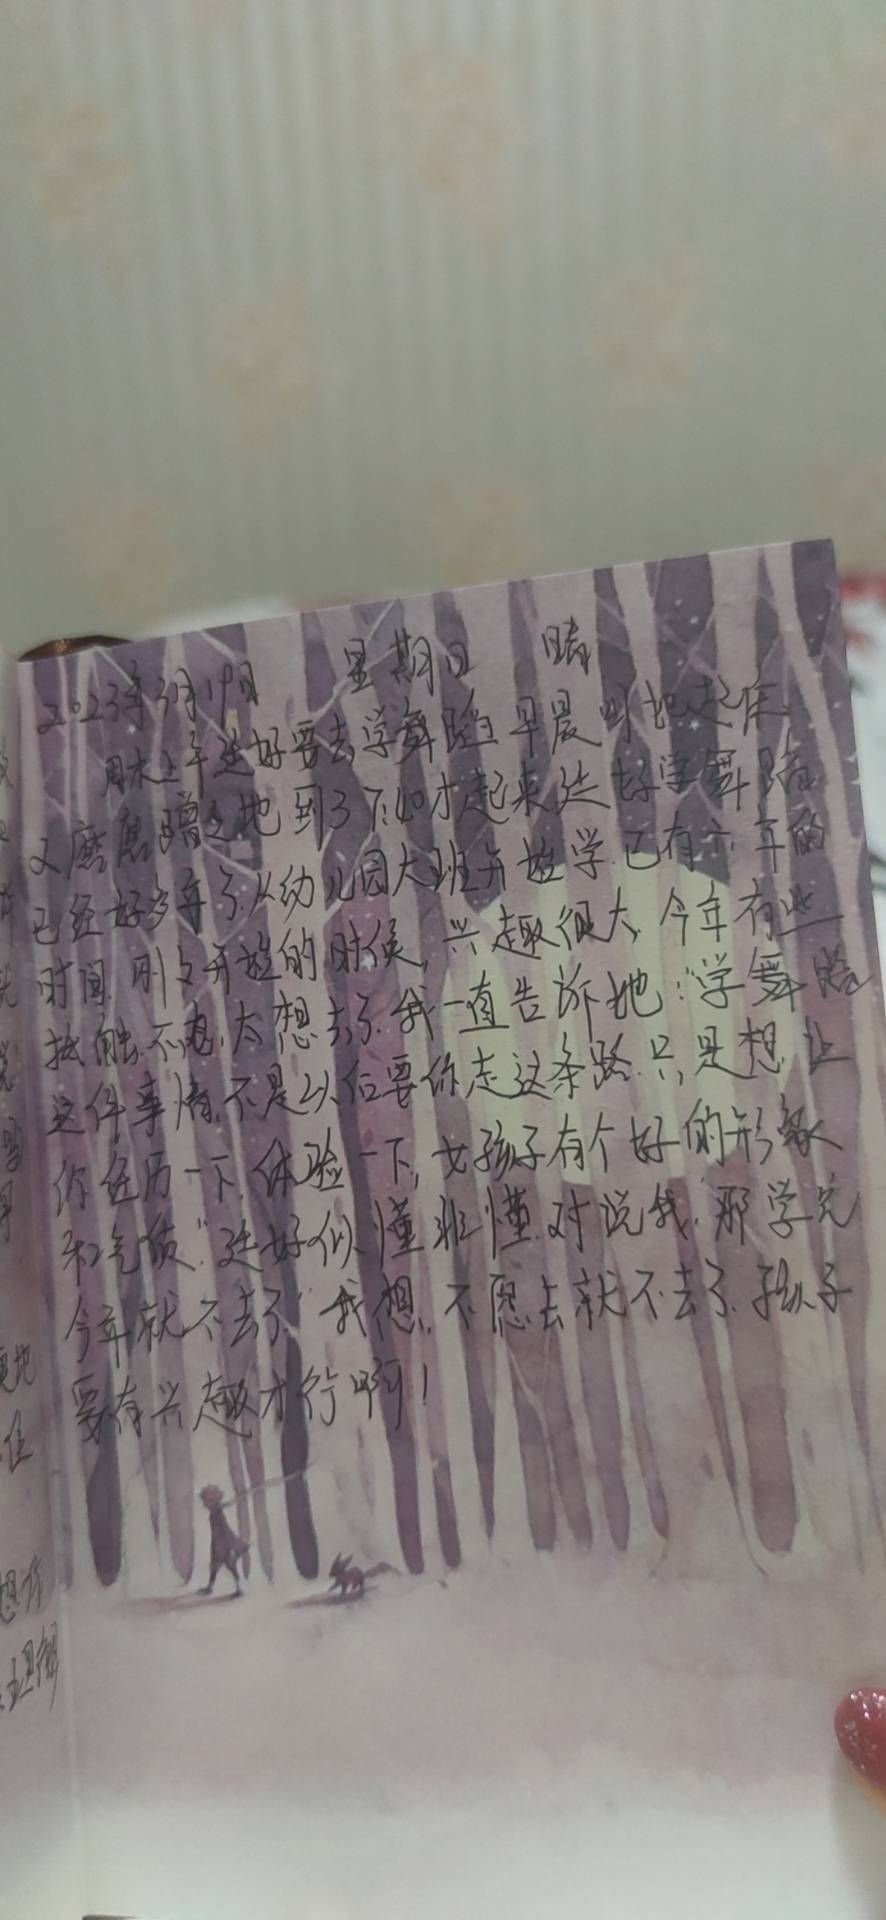 2023年3月19日 星期日 晴
周末上午廷好要去学舞蹈,早晨叫她起床,
又磨磨蹭蹭地到了7:40才起来,廷好学舞蹈
已经好多年了,从幼儿园大班开始学,已有六年的
时间,刚刚开始的时候,兴趣很大,今年有些
抵触,不太想去了,我一直告诉她:"学舞蹈
这件事情,不是以后要你走这条路,只是想让
你经历一下,体验一下,女孩子有个好的形象
和气质"廷好似懂非懂,对说我,"那学完
今年就不去了"我想,不愿去就不去了,孩子
要有兴趣才行啊!